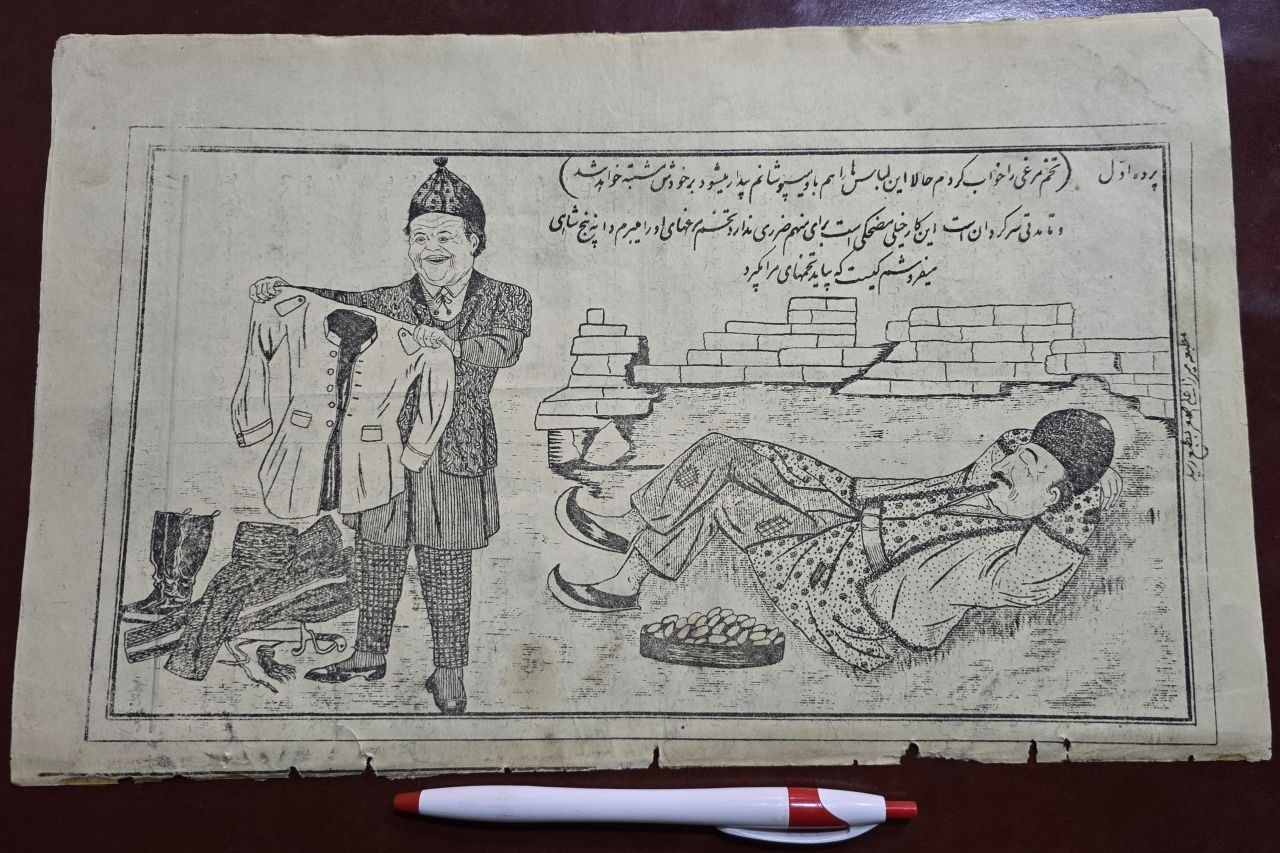 پرده اول (تخم مرغی را خواب کردم حالا این لباس ها را هم با و میپوشانم بیدار میشود بر خودش مشتبه خواهد شد)
و تا مدتی سرگردان است این کار خیلی مضحکی است برای منهم ضرری ندارد تخم مرغهای او را میبرم دانه پنج شاهی
میفروشم کیست که بیاید تخمهای مرا بگیرد